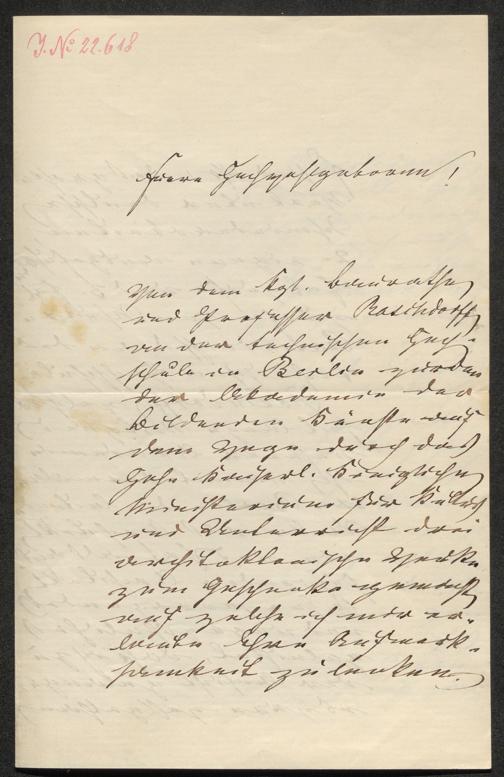 J. No 22.618
Euere Hochwohlgeboren!
Von dem Kgl. Baurathe
und Professor Raschdorff
an der technischen Hoch-
schule in Berlin wurden
der Akademie der
bildenden Künste auf
dem Wege durch das
Hohe Kaiserl. Königliche
Ministerium für Kultus
und Unterricht drei
architektonische Werke
zum Geschenke gemacht
auf welche ich mir er-
laube Ihre Aufmerk-
samkeit zu lenken.